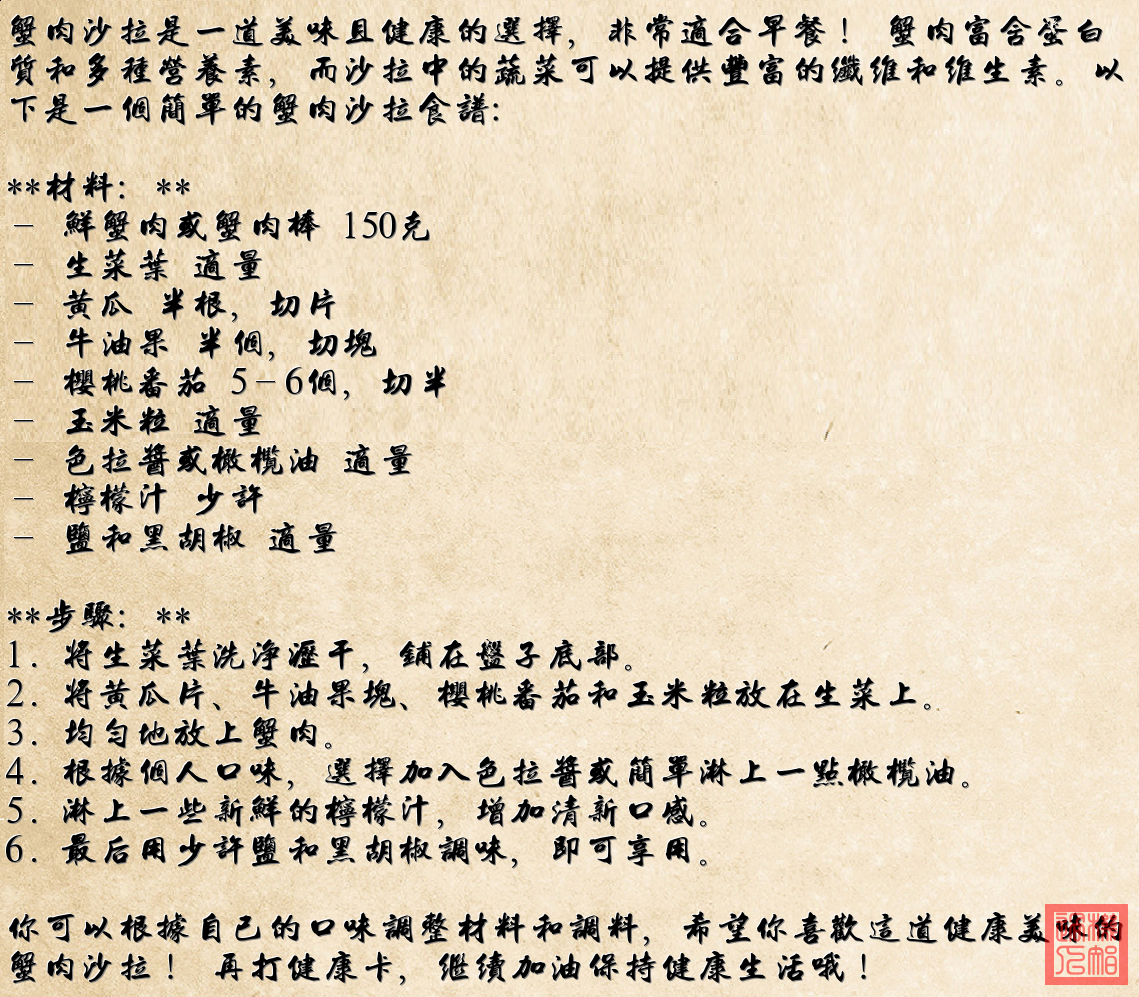 蟹肉沙拉是一道美味且健康的選擇，非常適合早餐！ 蟹肉富含蛋白
質和多種營養素，而沙拉中的蔬菜可以提供豐富的纖維和維生素。以
下是一個簡單的蟹肉沙拉食譜:
**材料： **
- 鮮蟹肉或蟹肉棒 150克
- 生菜葉 適量
- 黃瓜 半根，切片
- 牛油果 半個，切塊
- 櫻桃番茄 5-6個，切半
- 玉米粒 適量
- 色拉醬或橄欖油 適量
- 檸檬汁 少許
- 鹽和黑胡椒 適量
**步驟： **
1. 將生菜葉洗淨瀝干，鋪在盤子底部。
2. 將黃瓜片、牛油果塊、櫻桃番茄和玉米粒放在生菜上。
3. 均勻地放上蟹肉。
4. 根據個人口味，選擇加入色拉醬或簡單淋上一點橄欖油。
5. 淋上一些新鮮的檸檬汁，增加清新口感。
6. 最后用少許鹽和黑胡椒調味，即可享用。
你可以根據自己的口味調整材料和調料，希望你喜歡這道健康美味的
蟹肉沙拉！ 再打健康卡，繼續加油保持健康生活哦！